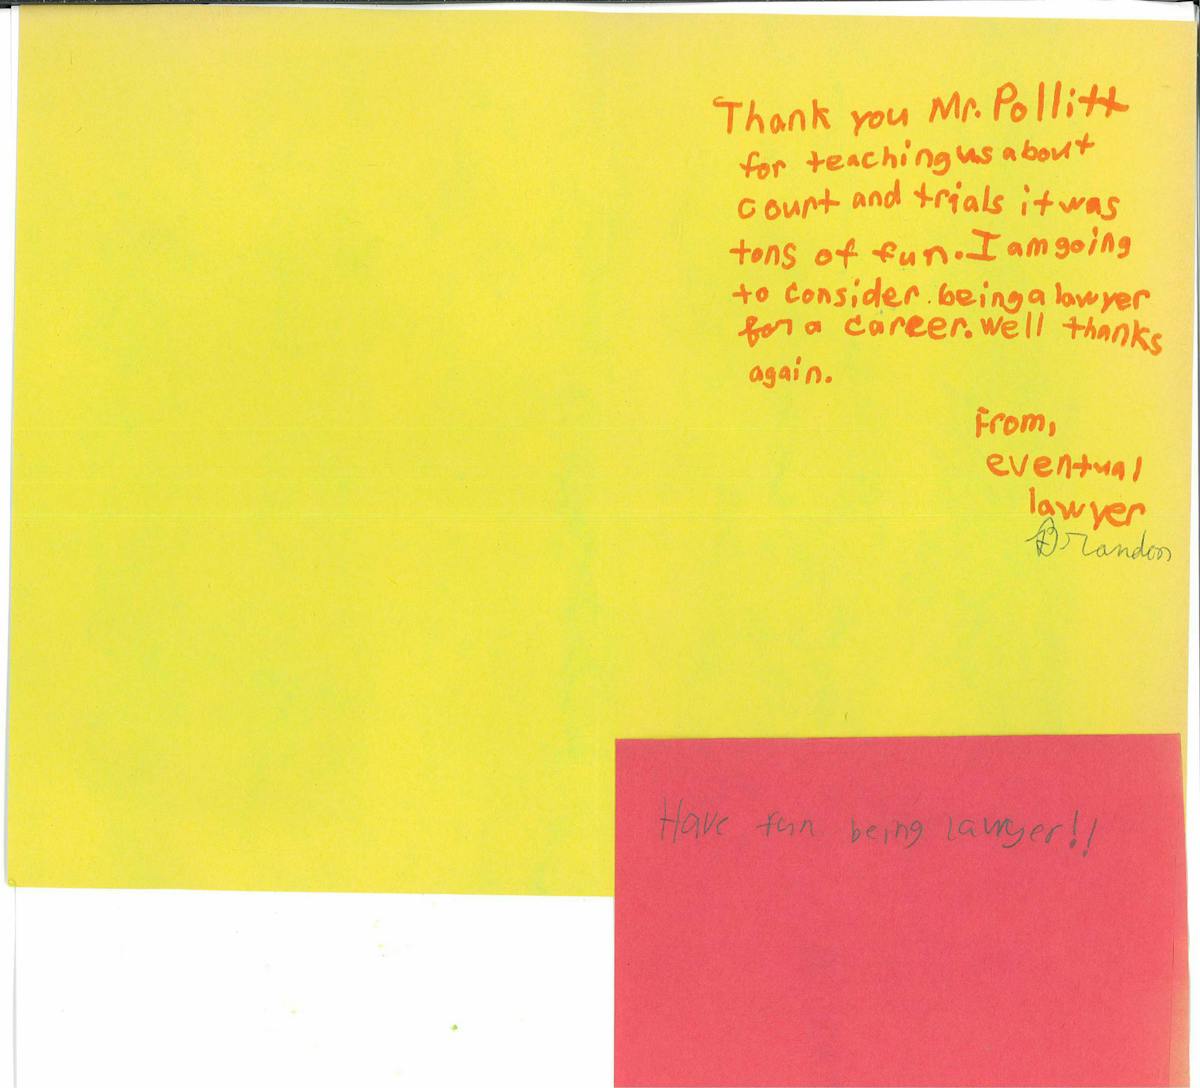 Thank you Mr. Pollitt
for teaching us about
court and trials it was
tons of fun. I am going
to consider being a lawyer
for a career. Well thanks
again.
From,
eventual
lawyer
Brandon
Have fun being lawyer!!